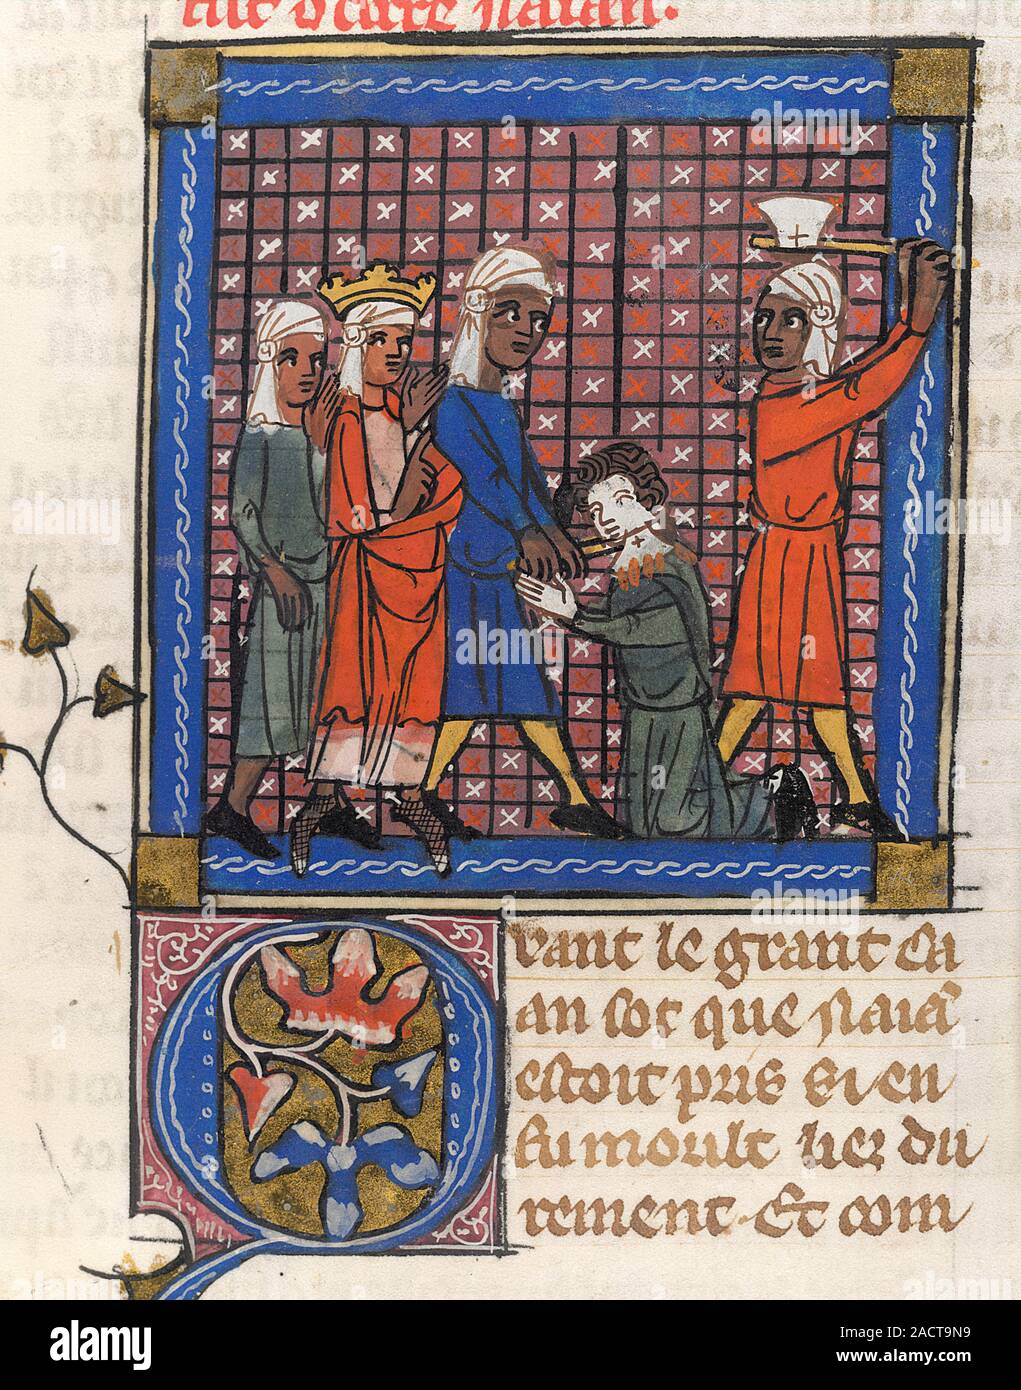 naian.
Quant le grant ca
an sot que naiā
estoit pris si en
fu moult liez du
rement. Et com
alamy
Image ID: 2ACT9N9
www.alamy.com